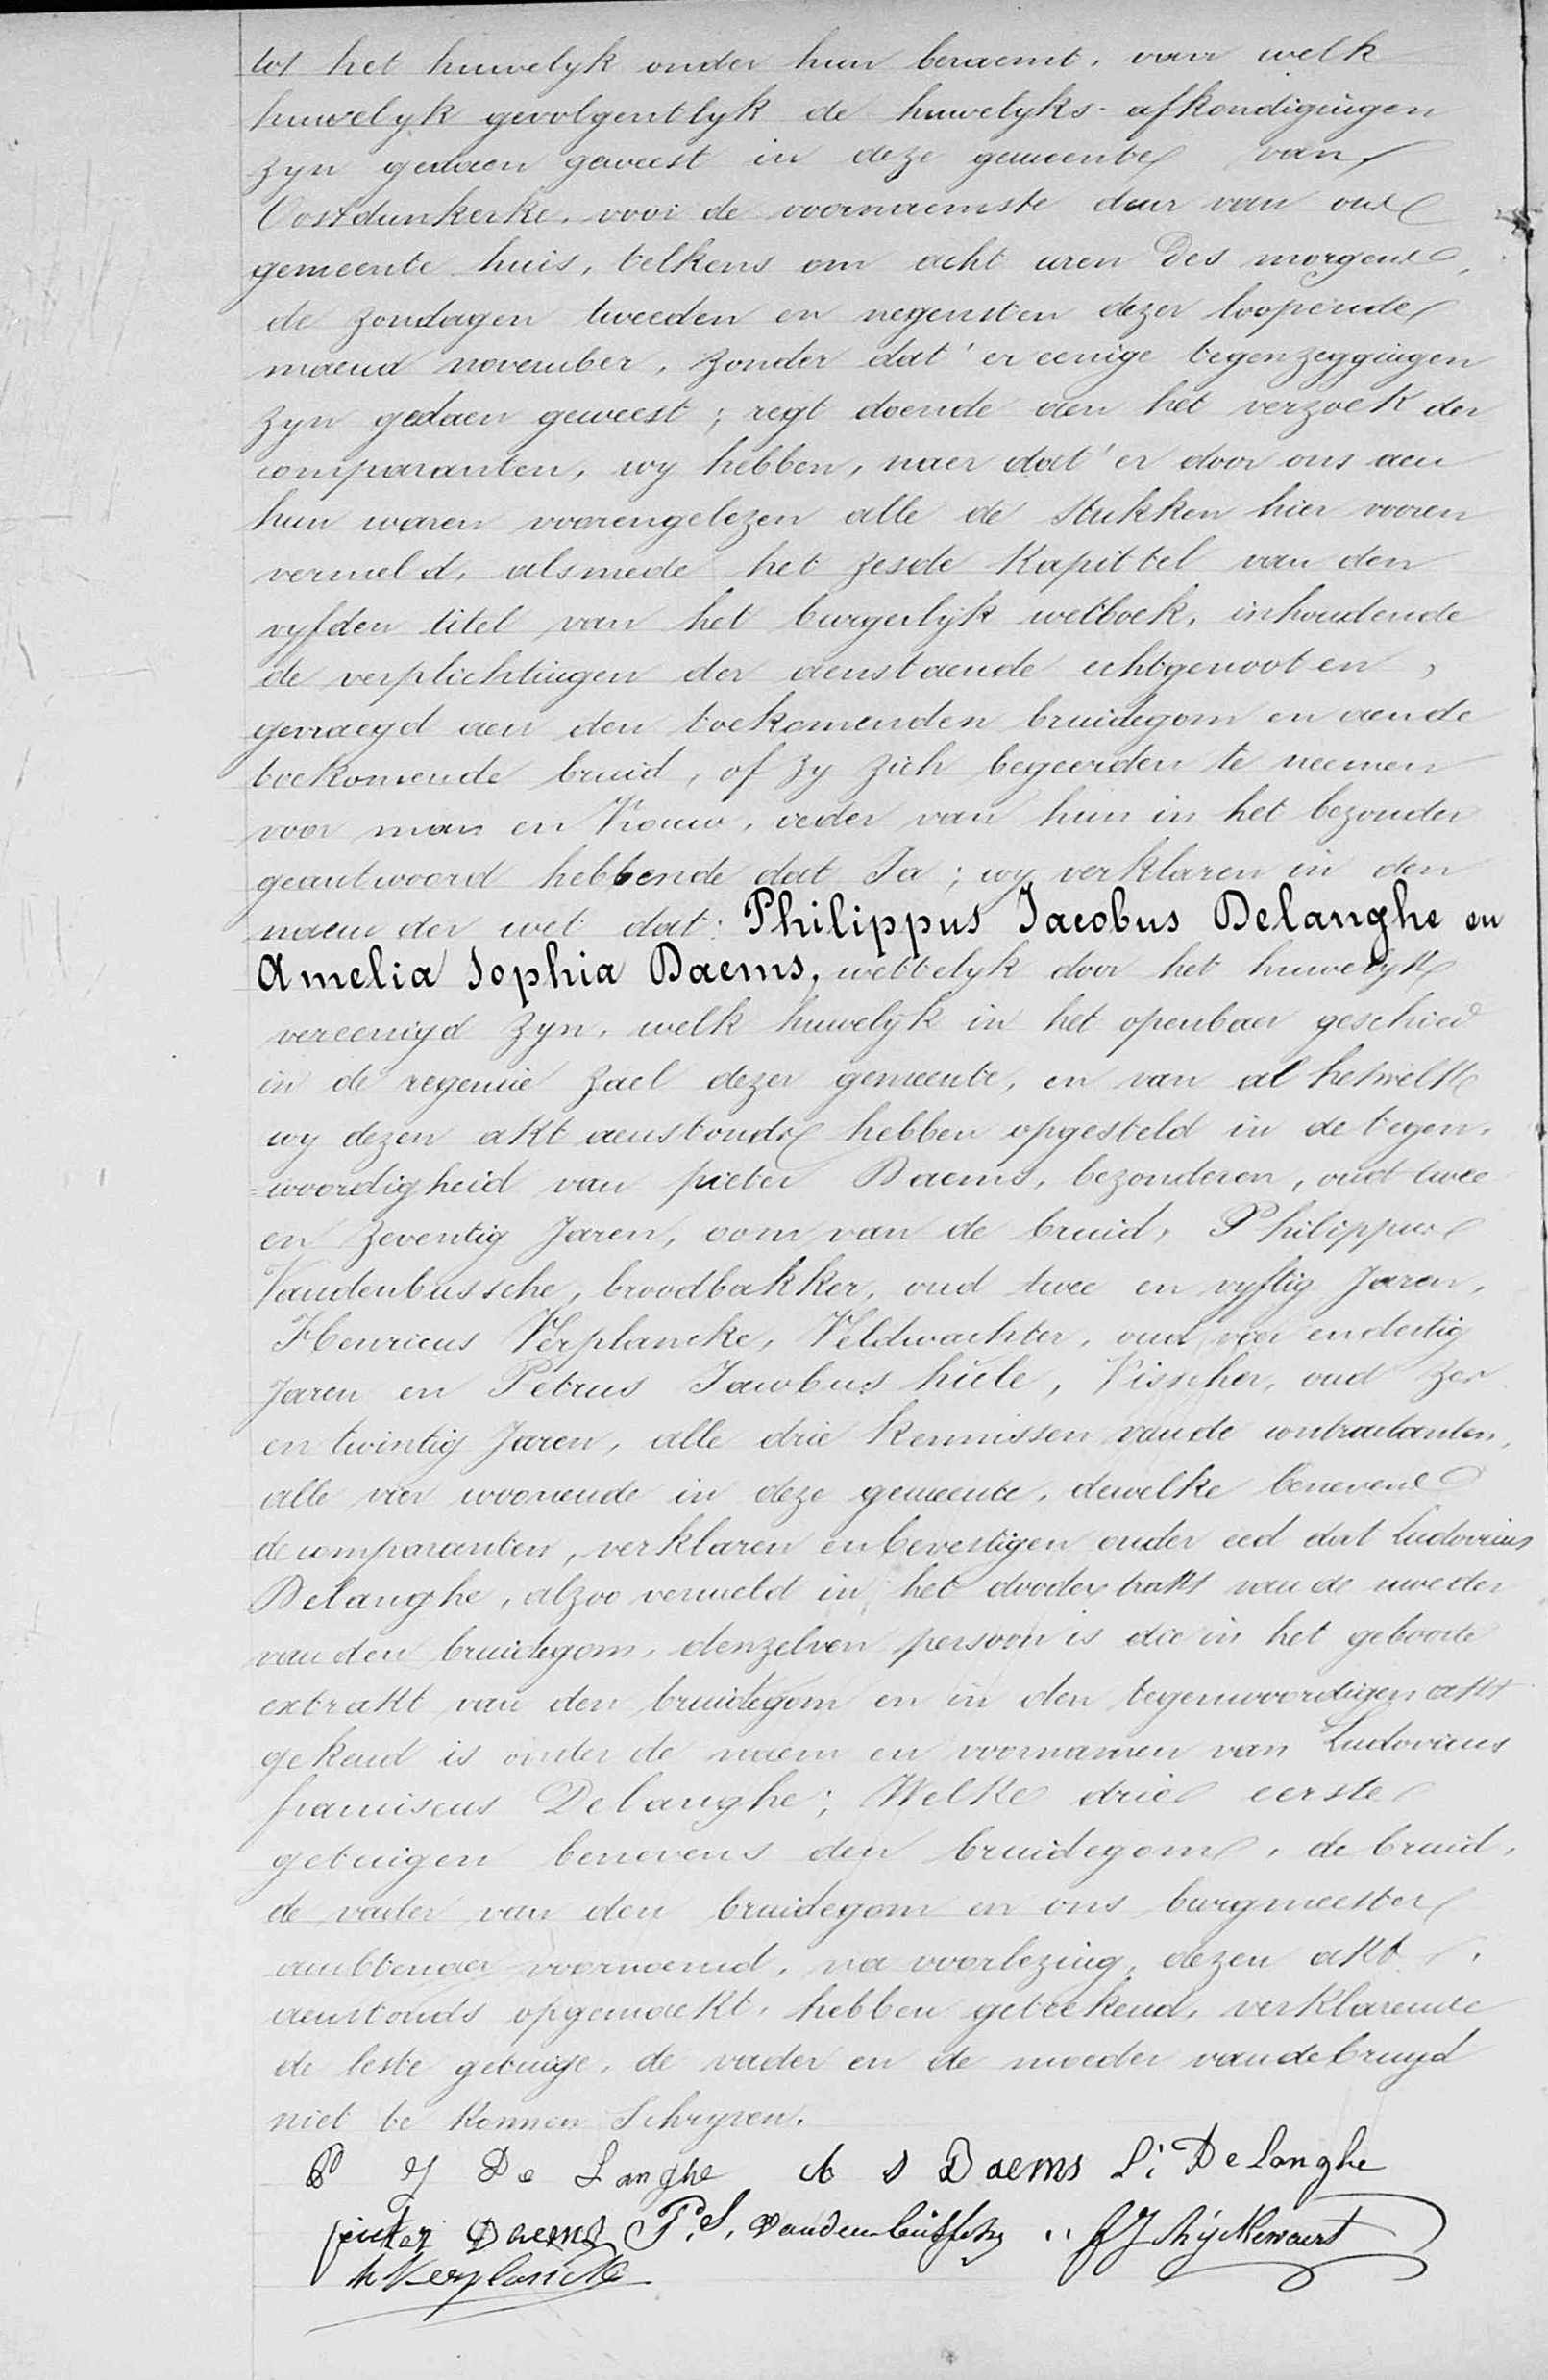 tot het huwelyk onder hun beraemt, van welk
huwelyk gevolgentlyk de huwelyks-afkondigingen
zyn gedaen geweest in deze gemeente van
Oostdunkerke, voor de voornaemste deur van ons
gemeente huis, telkens om acht uren des morgens,
de zondagen tweeden en negensten dezer loopende
maend november, zonder dat' er eenige tegenzeggingen
zyn gedaen geweest; regt doende aen het verzoek der
comparanten, wy hebben, naer dat' er door ons aen
hun waren voorengelezen alle de stukken hier vooren
vermeld, alsmede het zesde Kapittel van den
vyfden titel van het burgerlyk wetboek, inhoudende
de verplichtingen der aenstaende echtgenooten,
gevraegd aen den toekomenden bruidegom en aen de
toekomende bruid, of zy zich begeerden te neemen
voor man en Vrouw, ieder van hun in het bezonder
geantwoord hebbende dat Ja; wy verklaren in den
naem der wet dat: Philippus Jacobus Delanghe en
Amelia Sophia Daems, wettelyk door het huwelyk
vereenigd zyn, welk huwelyk in het openbaer geschied
in de regenie zael dezer gemeente, en van al hetwelk
wy dezen akt aenstonds hebben opgesteld in de tegen-
=woordigheid van pieter Daems, bezonderen, oud twee
en zeventig Jaren, oom van de bruid, Philippus
Vandenbussche, broodbakker, oud twee en vyftig Jaren,
Henricus Verplancke, Veldwachter, oud vier en dertig
Jaren en Petrus Jacobus hiele, Visscher, oud zes
en twintig Jaren, alle drie kennissen van de contractanten,
alle vier woonende in deze gemeente, dewelke benevens
de comparanten, verklaren en bevestigen onder eed dat Ludovicus
Delanghe, alzoo vermeld in het doodextrakt van de moeder
van den bruidegom, denzelven persoon is die in het geboorte
extrakt van den bruidegom en in den tegenwoordigen akt
gekend is onder de naem en voornamen van Ludovicus
franciscus Delanghe; Welke drie eerste
getuigen benevens den bruidegom, de bruid,
de vader van den bruidegom en ons burgmeester
ambtenaer voornoemd, na voorlezing, dezen akt,
aenstonds opgemaekt, hebben geteekend, verklarende
de leste getuige, de vader en de moeder van de bruyd
niet te konnen Schryven.
P J De Langhe A S Daems L: De Langhe
pieter Daems P. S. Vandenbussche
h Verplancke